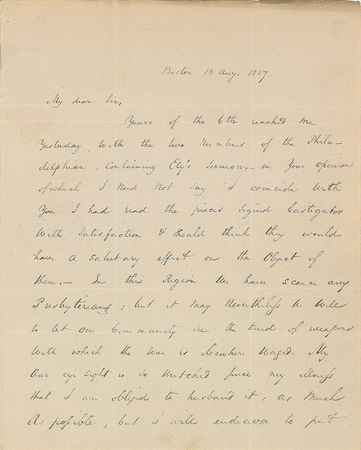 Boston 13 Aug. 1827
My dear Sir,
Yours of the 6th reached me
Yesterday, with the two numbers of the Phila-
delphian, containing Ely's Sermon, – in Your opinion
of which I need not say I coincide with
You. I had read the pieces signed Castigator
with satisfaction & should think they would
have a salutary effect on the Object of
them. – In this Region We have scarce any
Presbyterians; but it may nevertheless be well
to let our Community see the kind of weapons
with which the war is elsewhere waged. My
own eye sight is so wretched since my illness
that I am obliged to husband it, as much
As possible, but I will endeavor to put